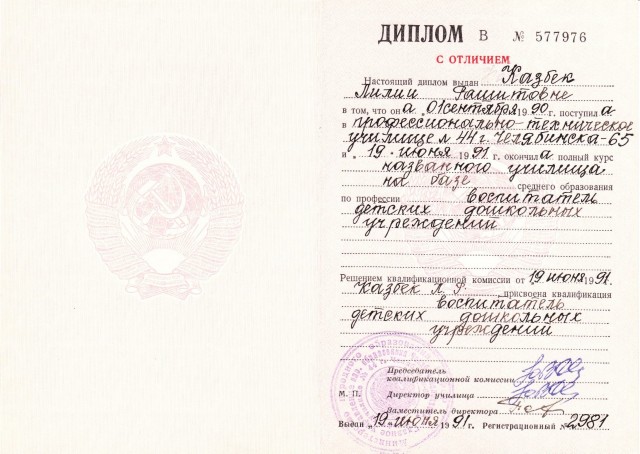 ДИПЛОМ В № 577976
С ОТЛИЧИЕМ
Настоящий диплом выдан Казбек
Лилии Рашитовне
в том, что она „01 сентября 1990 г. поступила
в профессионально-техническое
училище № 44 г. Челябинска-65
и „19" июня 1991 г. окончила полный курс
названного училища
на базе среднего образования
по профессии воспитатель
детских дошкольных
учреждений
Решением квалификационной комиссии от 19 июня 1991 г.
Казбек Л. Р. присвоена квалификация
воспитатель
детских дошкольных
учреждений
Председатель
квалификационной комиссии
М. П. Директор училища
Заместитель директора
Выдан „19" июня 1991 г. Регистрационный № 2981